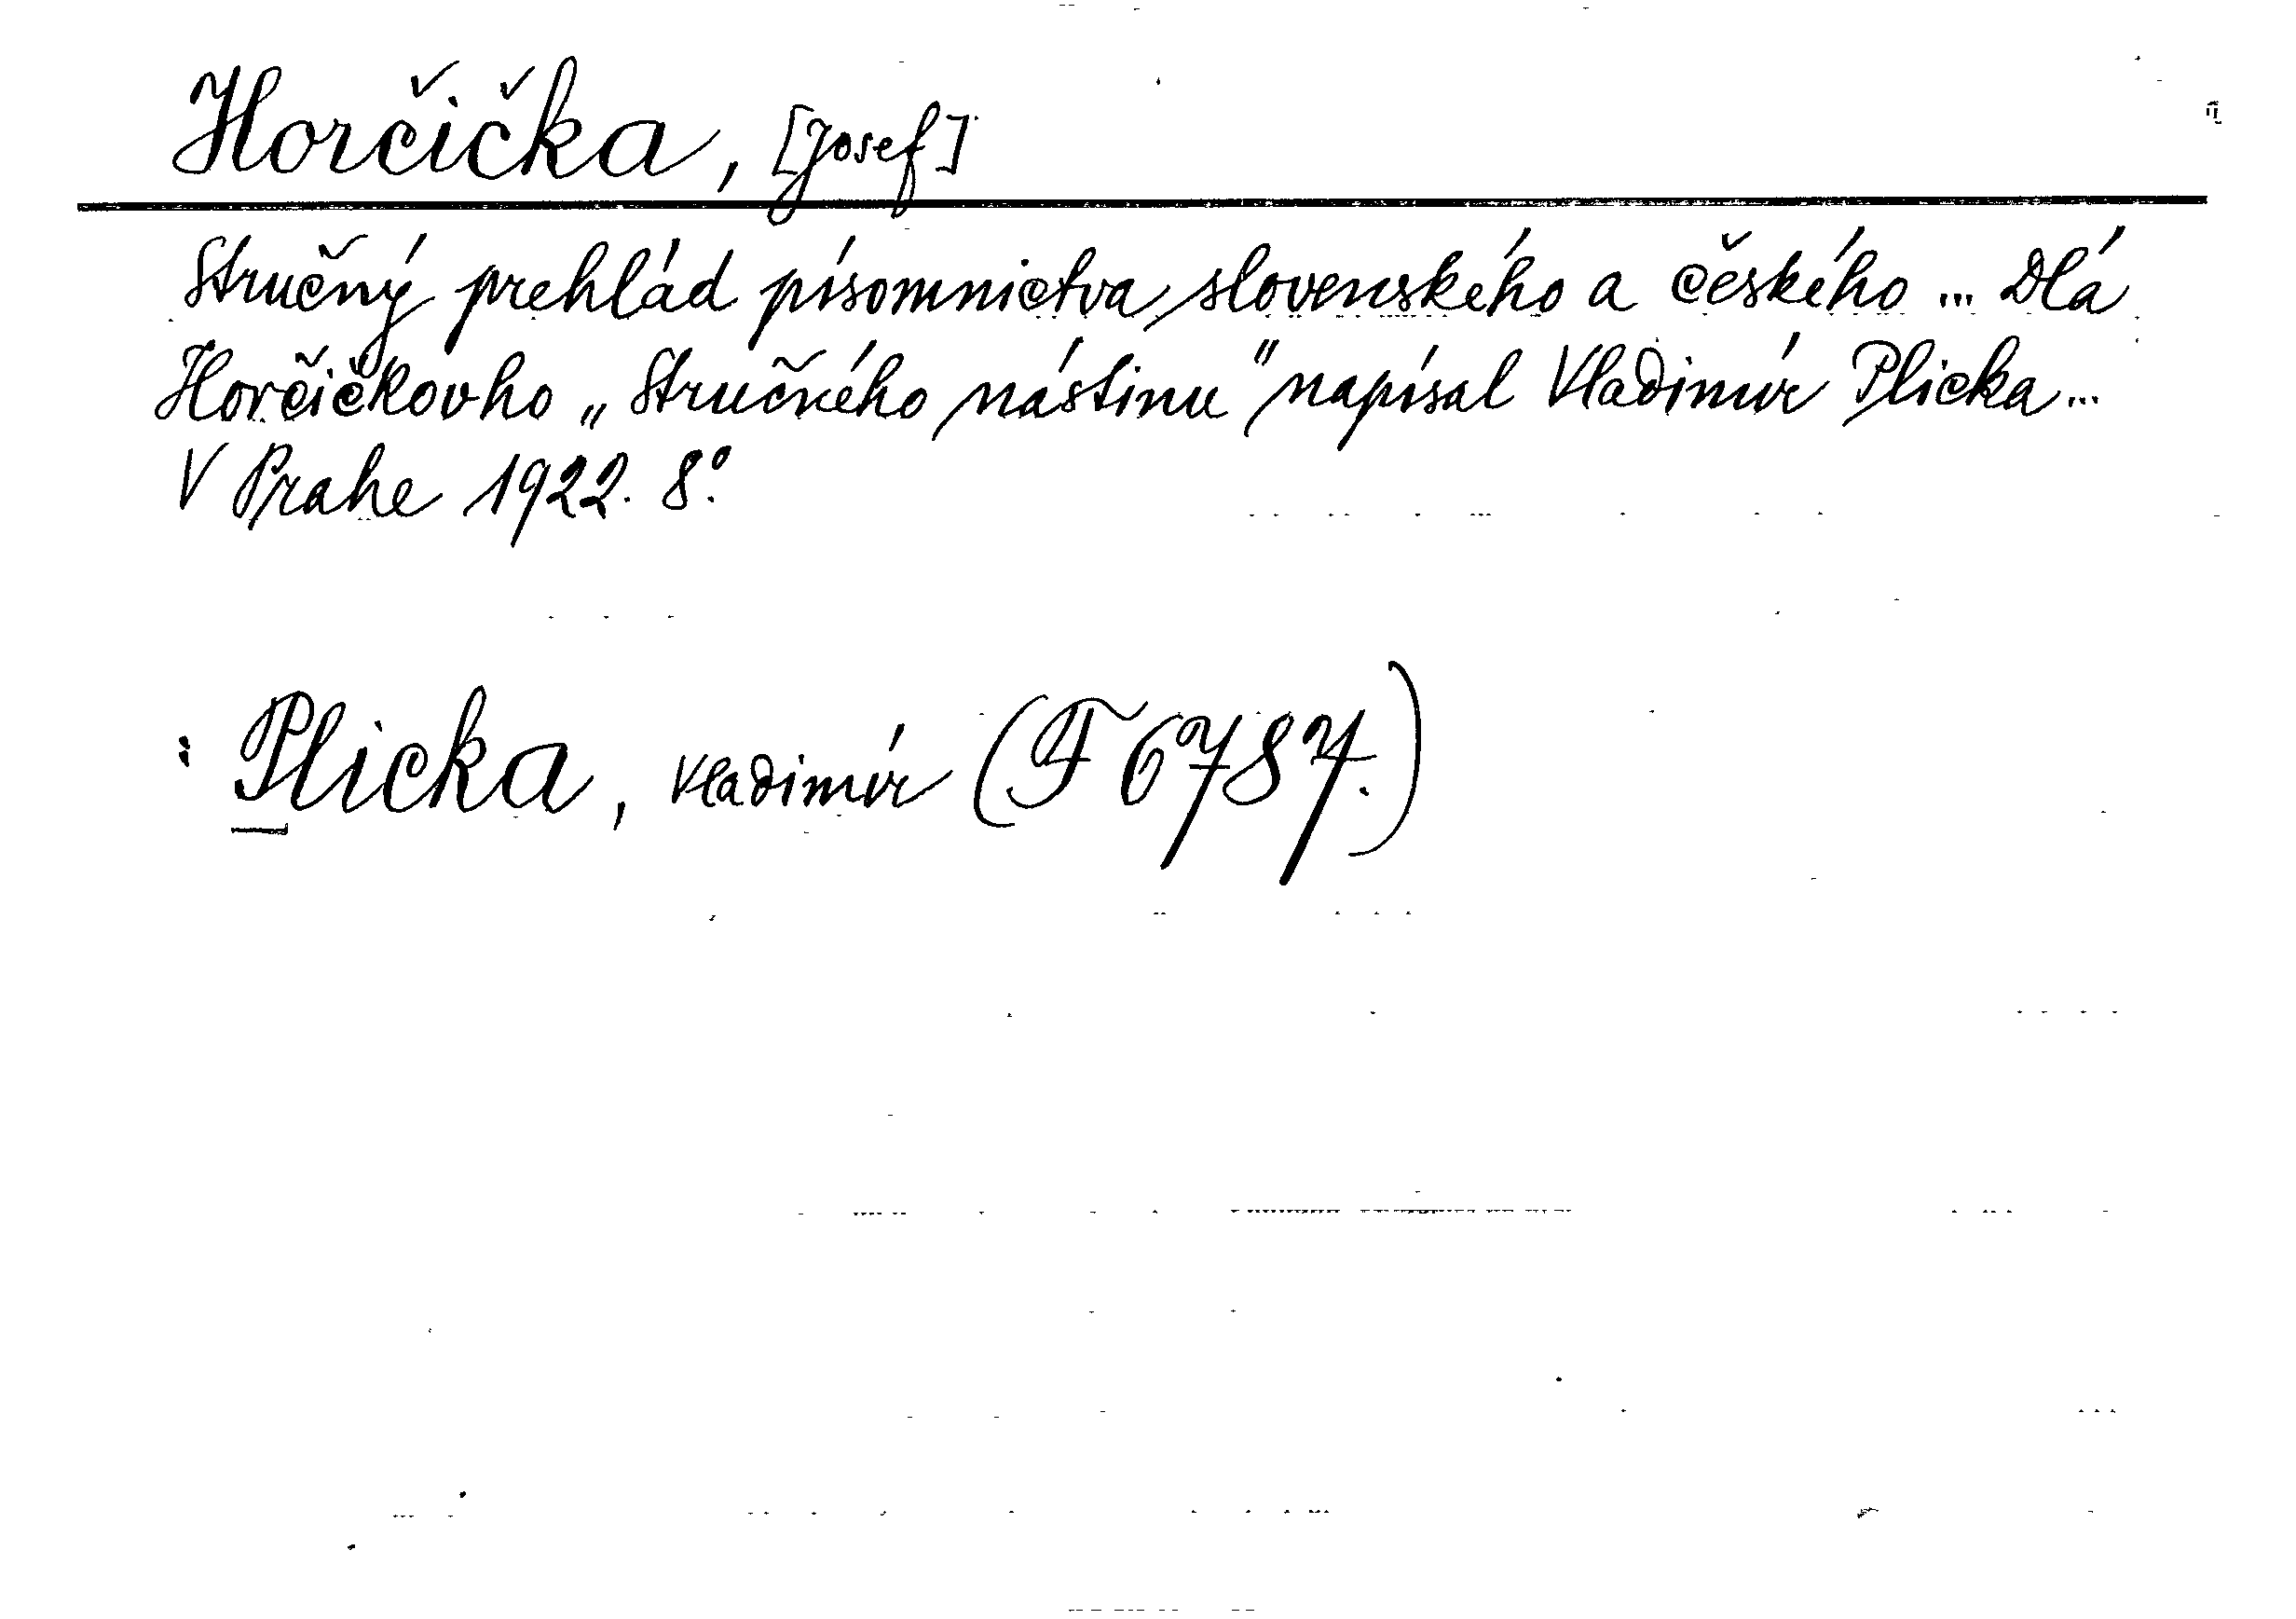 Horčička, [Josef]
Stručný prehlád písomnictva slovenského a českého ... Dlá
Horčičkovho „Stručného nástinu" napísal Vladimír Plicka ...
V Prahe 1922. 8°.
: Plicka, Vladimír (F 6787.)